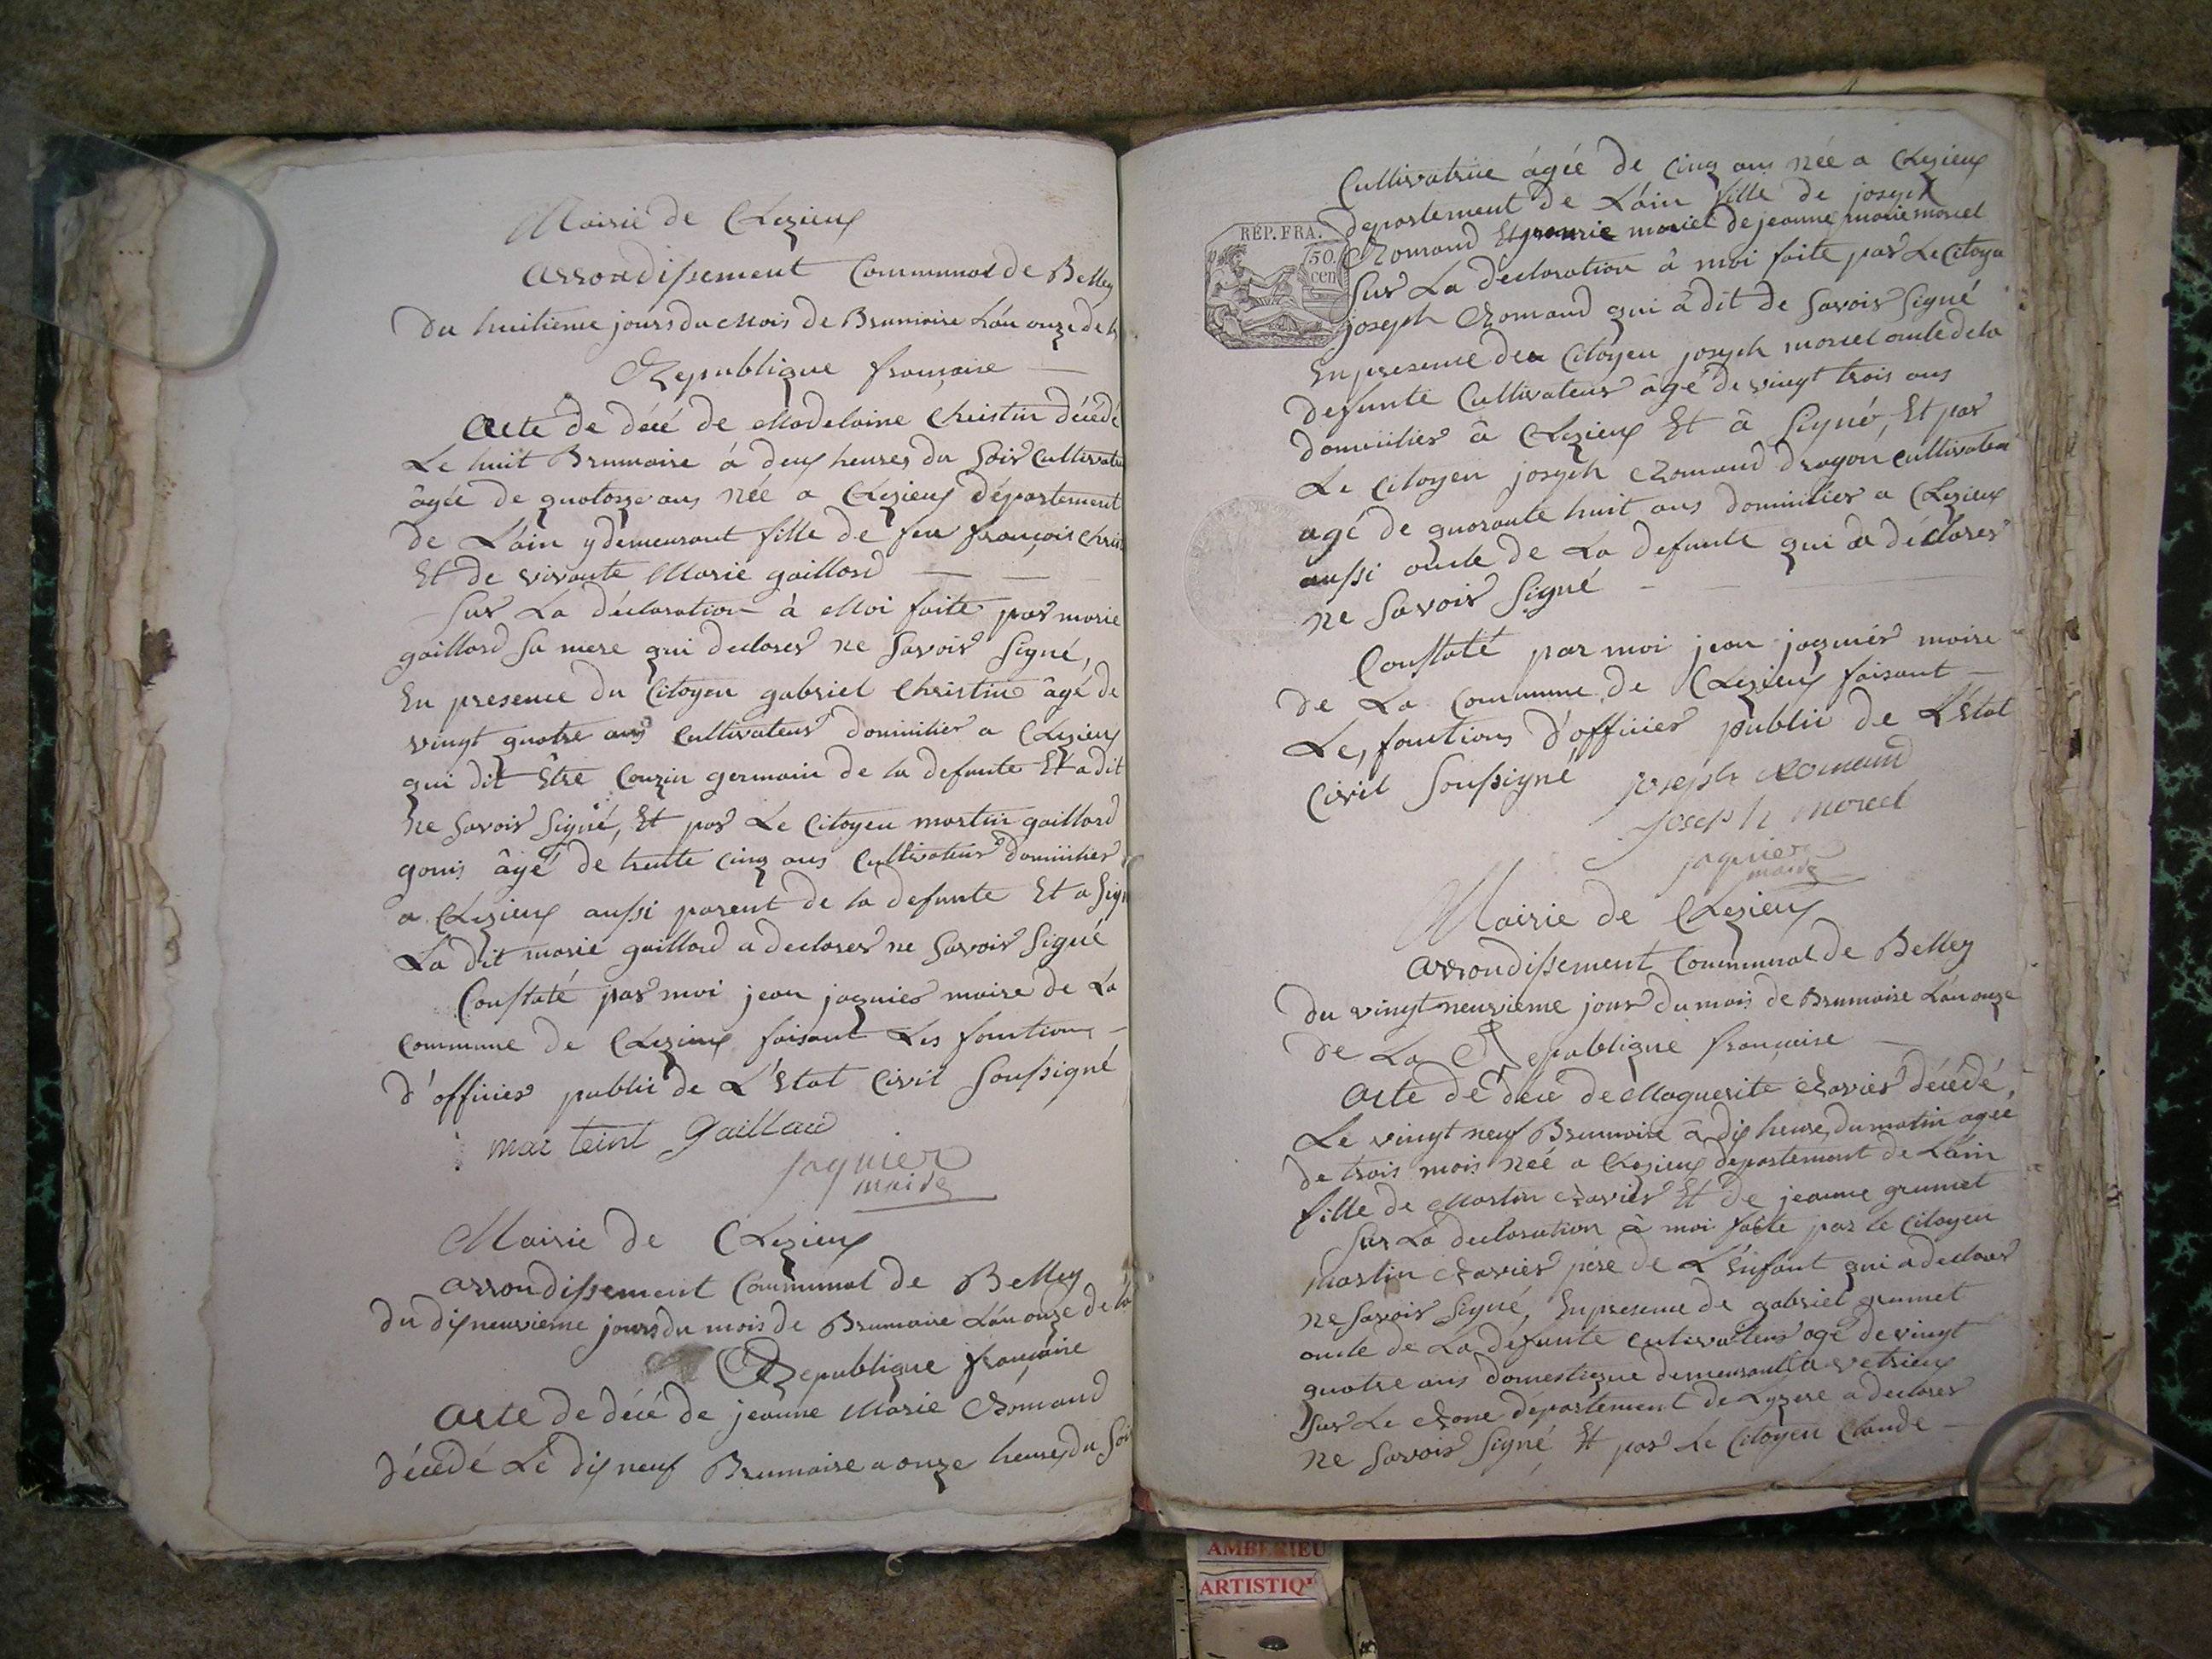 Mairie de Lezieux
arrondissement Communal de Belley
Du huitieme jours du Mois de Brumaire L'an onze de la
Republique francaise
Acte de décé de Madelaine Christin décédé
Le huit Brumaire à deux heures du Soir Cultivatri
âgée de quatorze ans Née a Lezieux département
de L'ain y demeurant fille de feu françois Chris
Et de vivante Marie gaillard
Sur La déclaration à Moi faite par marie
gaillard Sa mere qui declarer ne Savoir Signé,
En presence du Citoyen gabriel Christin âgé de
vingt quatre ans Cultivateur domicilier a Lezieux
qui dit Être Couzin germain de la defunte Et a dit
ne Savoir Signé, Et par Le Citoyen martin gaillard
gonis âgé de trente Cinq ans Cultivateur domicilier
a Lezieux aussi parent de la defunte Et a Sign
La dit marie gaillard a declarer ne Savoir Signé
Constaté par moi jean jaquier maire de La
Commune de Lezieux faisant Les fonctions
d'officier public de L'Etat Civil Soussigné
mar teint Gaillard
jaquier
maire
Mairie de Lezieux
arrondissement Communal de Belley
du dix neuvieme jours du mois de Brumaire L'an onze de la
Republique française
Acte de décé de jeanne Marie Romand
décédé Le dix neuf Brumaire a onze heures du Soir
Cultivatrice âgée de Cinq ans Née a Lezieux
departement de L'ain fille de joseph
REP. FRA.
50.
cen
Romand Et marie morel de jeanne marie morel
Sur La déclaration à moi faite par Le Citoyen
joseph Romand qui à dit de Savoir Signé
En presence du Citoyen joseph morel oncle de la
defunte Cultivateur âgé de vingt trois ans
domicilier à Lezieux Et à Signé, Et par
Le Citoyen joseph Romand dragon cultivateur
agé de quarante huit ans domicilier a Lezieux
aussi oncle de La defunte qui a déclarer
ne Savoir Signé
Constaté par moi jean jaquier maire
de La Commune de Lezieux faisant
Les fonctions d'officier public de L'Etat
Civil Soussigné
joseph Romand
joseph morel
jaquier
maire
Mairie de Lezieux
arrondissement Communal de Belley
du vingt neuvieme jour du mois de Brumaire L'an onze
de La Republique francaise
Acte de décé de Maguerite Ravier décédé,
Le vingt neuf Brumaire à dix heures du matin agée
de trois mois Née a Lezieux departement de L'ain
fille de Martin Ravier Et de jeanne grumet
Sur La declaration à moi faite par le Citoyen
Martin Ravier père de L'Enfant qui a declarer
ne Savoir Signé, En presence de gabriel grumet
oncle de La defunte cultivateur agé de vingt
quatre ans domestique demeurant a vetrieux
Sur Le Rone département de Lyzere a declarer
Ne Savoir Signé, Et par Le Citoyen Claude
AMBERIEU
ARTISTIQ